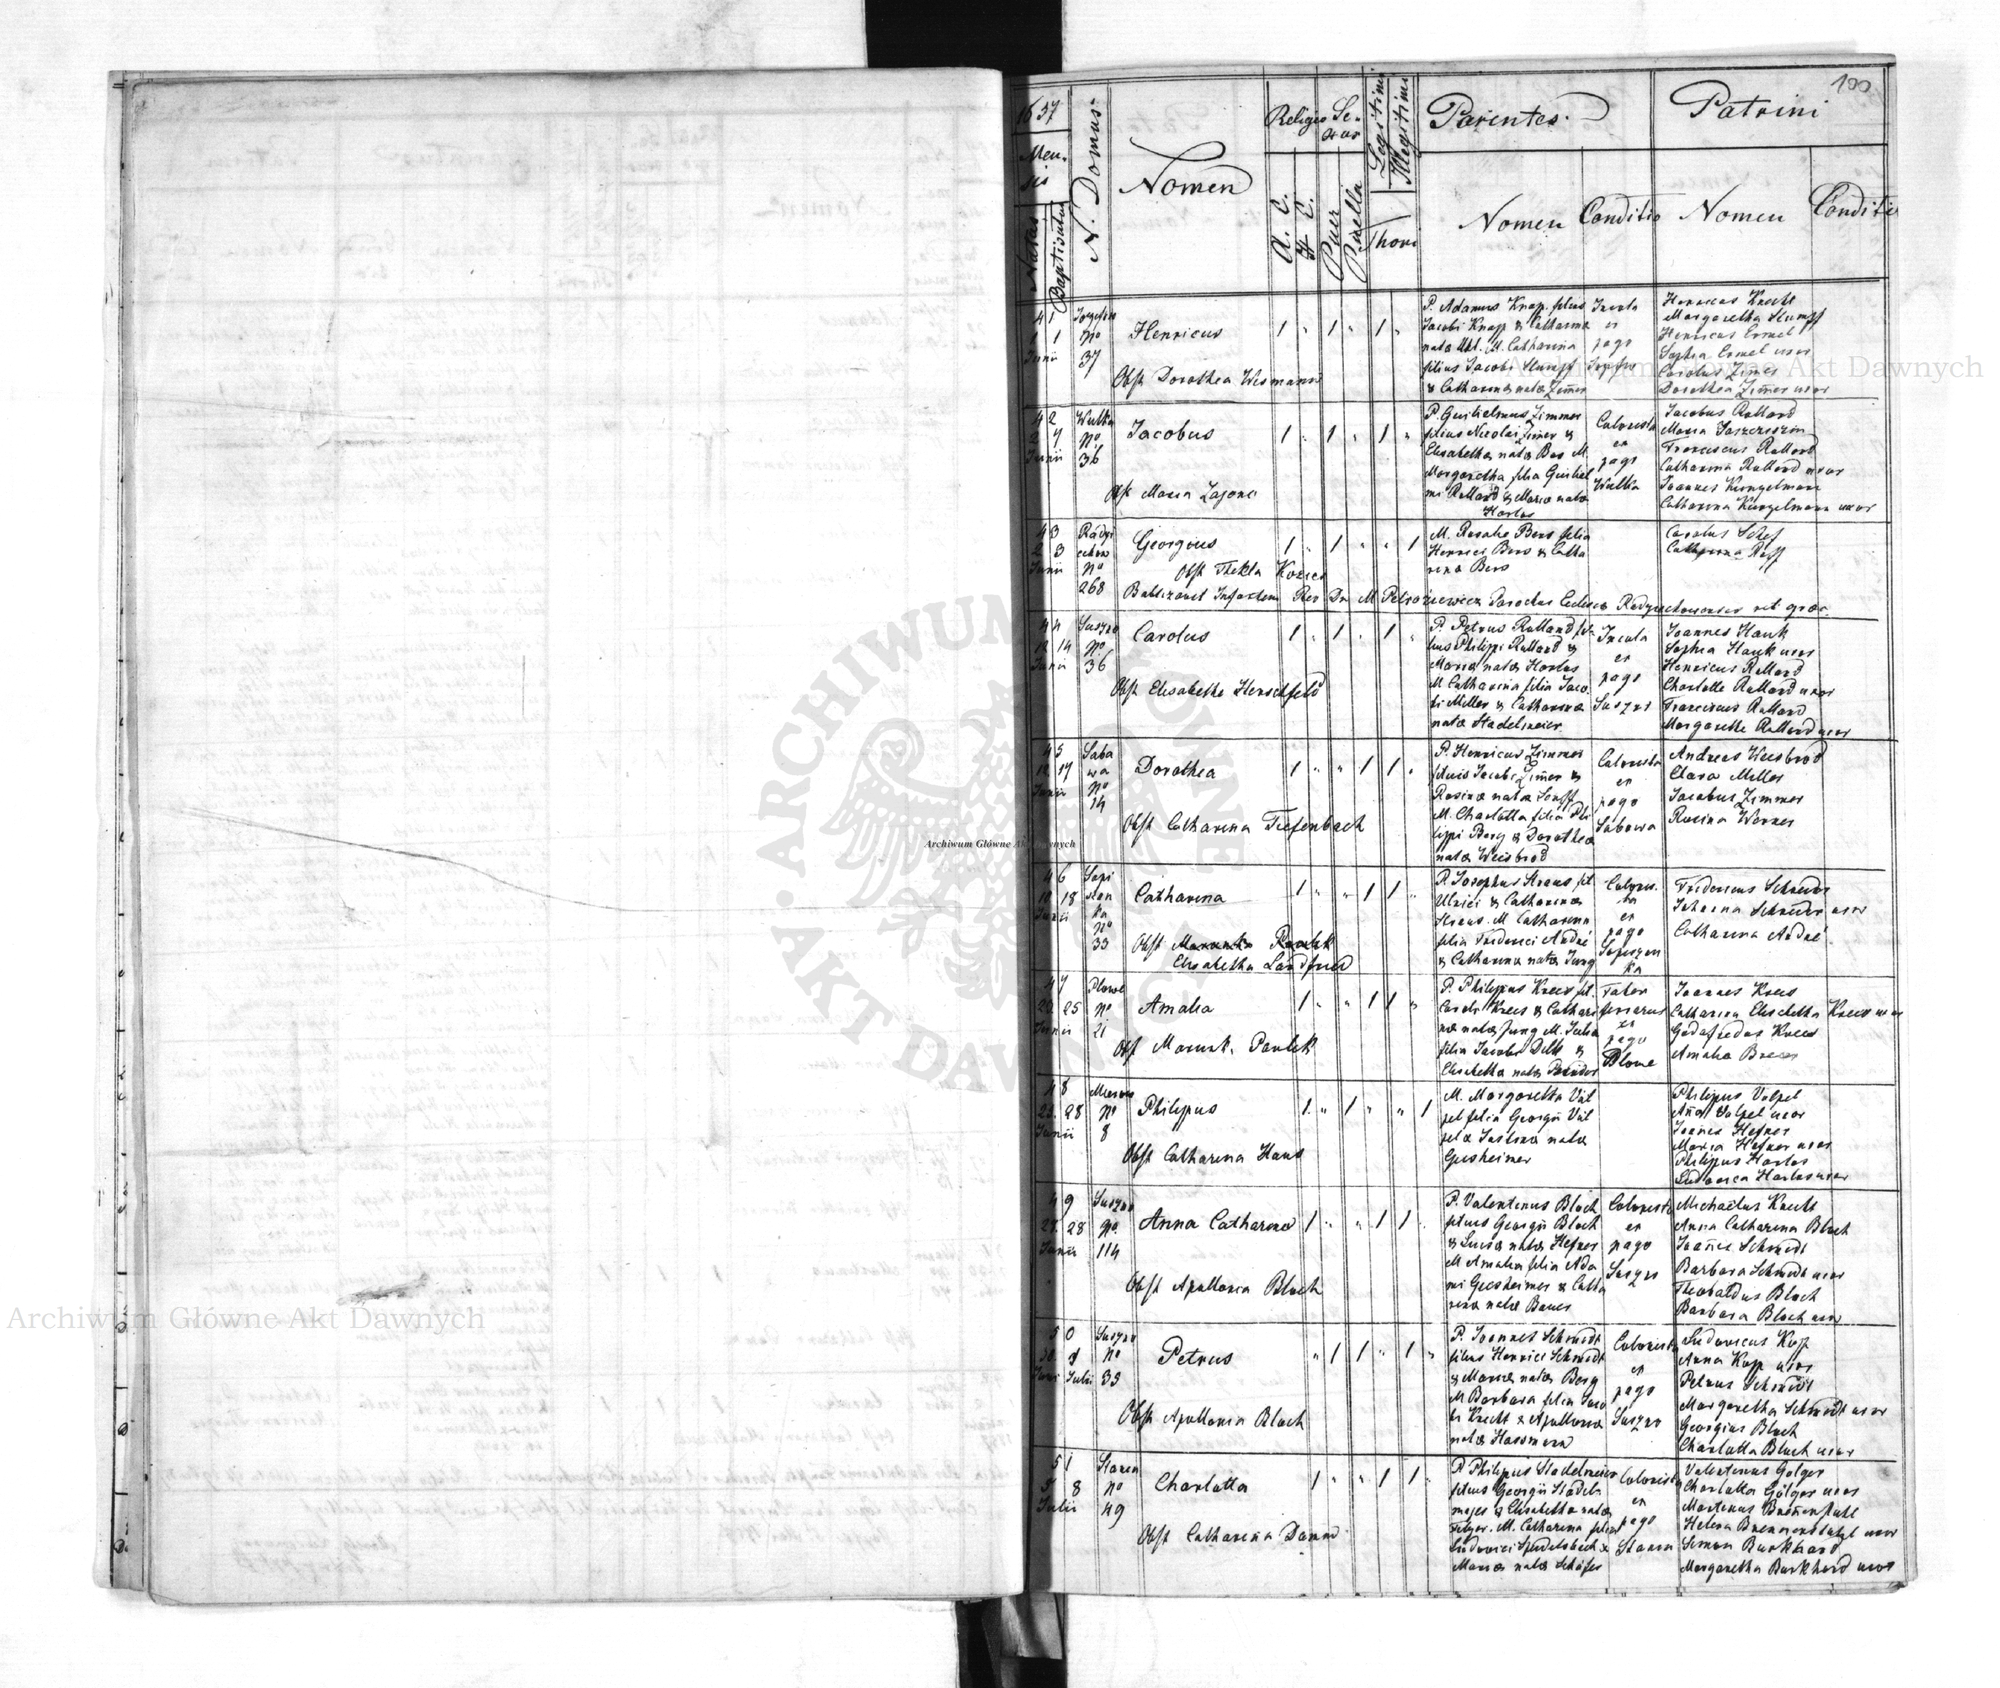 100
1857
Mensis
Natus
Baptisatus
N. Domus
Nomen
Religio
A. C.
H. C.
Sexus
Puer
Puella
Legitimi
Illegitimi
Thori
Parentes
Nomen
Conditio
Patrini
Nomen
Conditio
41
1 1
Junii
No
37
Henricus
Obst Dorothea Wismann
P. Adamus Knap. filius
Jacobi Knapp & Catharina
M. Catharina
filius Jacobi Stumpf
& Catharina nata Zim̅er
Incola
ex
pago
Henricus Knecht
Margaretha Stumpf
Henricus Ermel
Sophia Ermel uxor
Carolus Zim̅er
Dorothea Zim̅er uxor
42
Junii
Wulka
No
36
Jacobus
Obst Maria Zajonc
P. Guilielmus Zimmer
filius Nicolai Zim̅er &
Elisabetha nata Bor M.
Margaretha filia Guiliel
mi Rolland & Maria nata
Harlos
Colonista
ex
pago
Wulka
Jacobus Rolland
Maria
Franciscus Rolland
Catharina Rolland uxor
Joannes Kungelmann
Catharina Kungelmann uxor
43
2 3
Junii
Radzi
echow
No
268
Georgius
Obst Thekla
Babtizavit Infantem Rev Dn M Petrosiewicz Parochus Eccles Radziechoviensis rit. graec.
M. Rosalie Bers filia
Henrici Bers & Catha
rina Bers
Carolus Scheff
Catharina Reff
44
12 14
Junii
Suszno
No
36
Carolus
Obst Elisabetha Herschfeld
P. Petrus Rolland fil-
ius Philippi Rolland &
Maria nata Harlos
M. Catharina filia Jaco-
bi Miller & Catharina
nata Stadelmeier
Incola
ex
pago
Suszno
Joannes Hauk
Sophia Hauk uxor
Henricus Rolland
Charlotte Rolland uxor
Franciscus Rolland
Margaretha Rolland uxor
45
12 17
Junii
Saba
wa
No
14
Dorothea
Obst Catharina Tiefenbach
P. Henricus Zimmer
filius Jacobi Zim̅er &
Rosina nata Senft
M. Charlotta filia Phi
lippi Berg & Dorothea
nata Weisbrod
Colonista
ex
pago
Sabowa
Andreas Weisbrod
Clara Miller
Jacobus Zimmer
Rosina Werner
46
10 18
Junii
Sapi
ezan
ka
No
33
Catharina
Obst Pawlik
Elisabetha Landfried
P. Josephus Kraus fil
Ulrici & Catharina
Kraus. M Catharina
filia Friderici André
& Catharina nata Jung
Colonis
ta
ex
pago
Sapiezan
ka
Fridericus Schneider
Johanna Schneider uxor
Catharina André
47
23 25
Junii
Plowe
No
21
Amalia
Obst Pawlik
P. Philippus Krees fil.
Caroli Krees & Cathari
na nata Jung M. Julia
filia Jacobi Dill &
Elisabetha nata Bender
Faber
ferrarius
ex
pago
Plowe
Joannes Krees
Catharina Elisabetha Krees uxor
Godofredus Krees
Amalia Brees
48
23. 28
Junii
No
8
Philippus
Obst Catharina Haus
M. Margaretha Völ
pel filia Georgii Völ
pel & Justina nata
Geesheimer
Philippus Volpel
An̅a Volpel uxor
Joan̅es Hefner
Maria Hefner uxor
Philippus Harlos
Ludovica Harlos uxor
49
27. 28
Junii
Suszno
No.
114
Anna Catharina
Obst Apollonia Bloch
P. Valentinus Bloch
filius Georgii Bloch
& Luisa nata Hefner
M Amalia filia Ada
mi Geesheimer & Catha
rina nata Bauer
Colonista
ex
pago
Suszno
Michaelus Knecht
Anna Catharina Bloch
Joan̅es Schmidt
Barbara Schmidt uxor
Theobaldus Bloch
Barbara Bloch uxor
50
30. 1
Juni Julii
Suszno
No
33
Petrus
Obst Apollonia Bloch
P. Joannes Schmidt
filius Henrici Schmidt
& Maria nata Berg
M Barbara filia Jaco
bi Knecht & Apollonia
nata Hassmann
Colonista
ex
pago
Suszno
Ludovicus Kopp
Anna Kopp uxor
Petrus Schmidt
Margaretha Schmidt uxor
Georgius Bloch
Charlotta Bloch uxor
51
5 8
Julii
Stanin
No
49
Charlotta
Obst Catharina Damm
P. Philippus Stadelmeier
filius Georgii Stadel
mayer & Elisabetha nata
M. Catharina filia
Ludovici Spudelbech &
Maria nata Schäfer
Colonista
ex
pago
Stanin
Valentinus Golger
Charlotta Golger uxor
Martinus Bren̅enstuhl
Helena Brennenstuhl uxor
Simon Burkhard
Margaretha Burkhard uxor
ARCHIWUM GŁÓWNE AKT DAWNYCH
Archiwum Główne Akt Dawnych
Archiwum Główne Akt Dawnych
Archiwum Główne Akt Dawnych